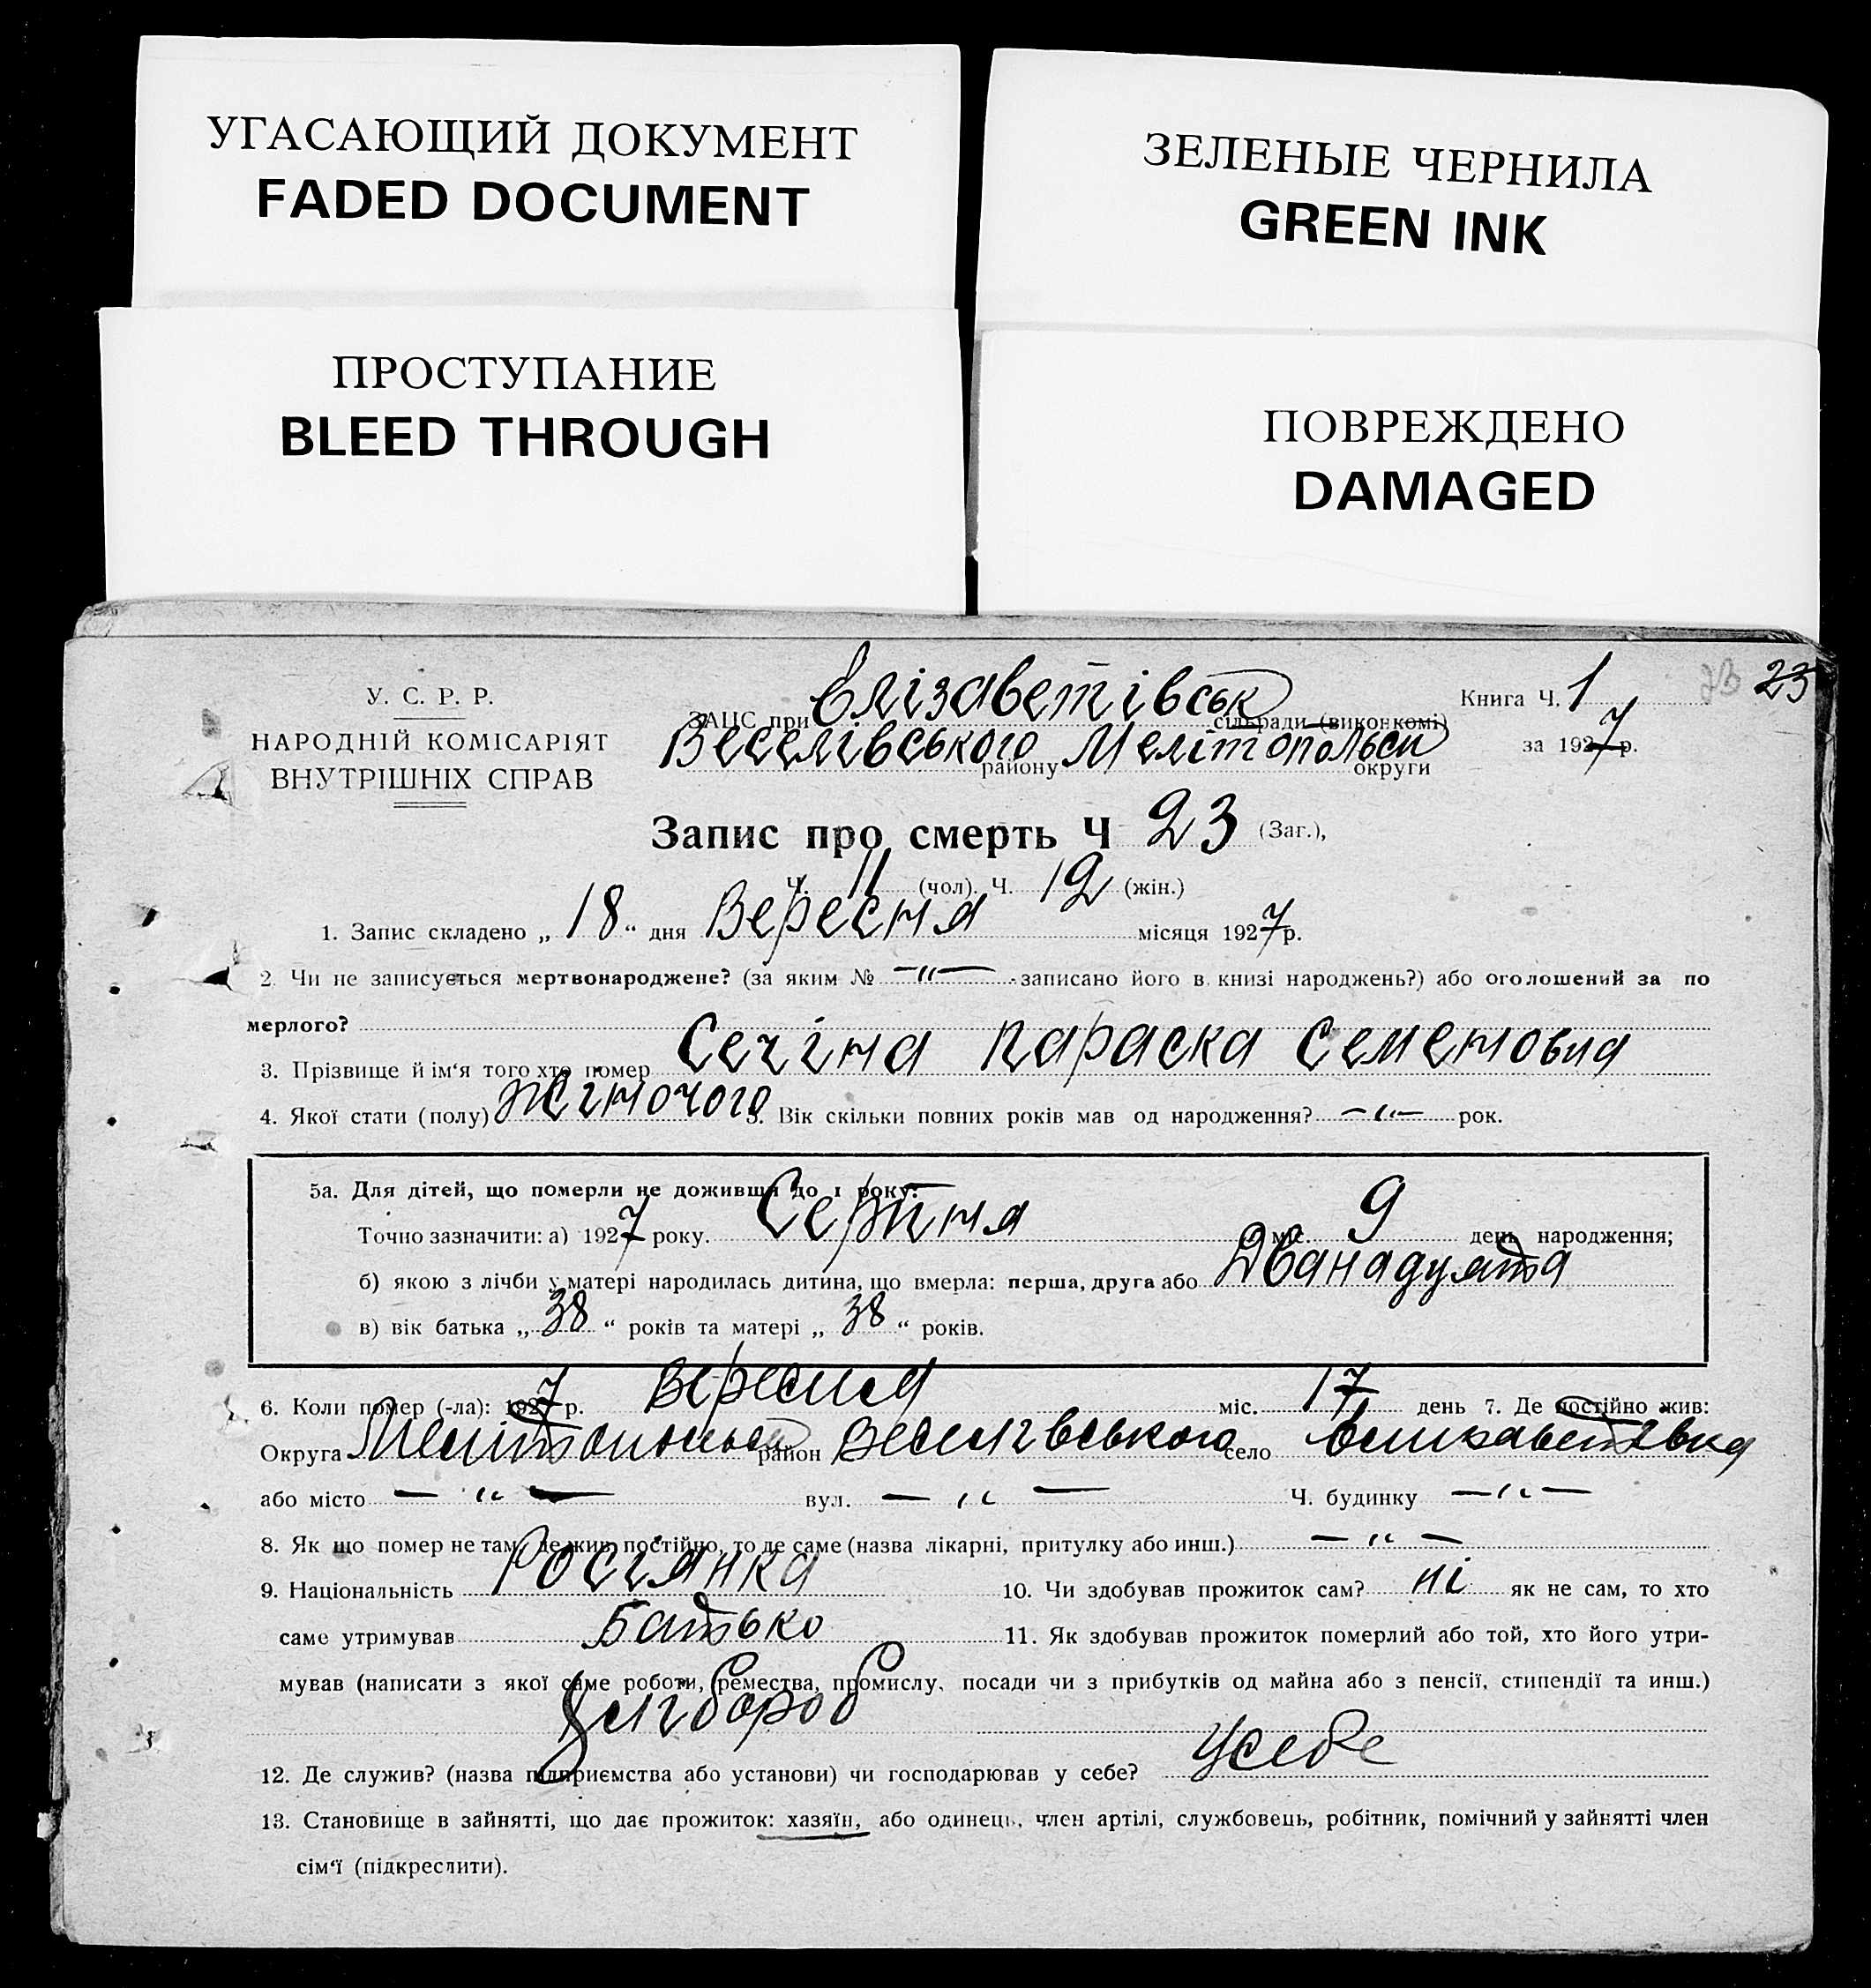 УГАСАЮЩИЙ ДОКУМЕНТ
FADED DOCUMENT
ЗЕЛЕНЫЕ ЧЕРНИЛА
GREEN INK
ПРОСТУПАНИЕ
BLEED THROUGH
ПОВРЕЖДЕНО
DAMAGED
У. С. Р. Р.
НАРОДНІЙ КОМІСАРІЯТ
ВНУТРІШНІХ СПРАВ
ЗАГС при Єлізаветівськ сільради (виконкомі)
Веселівського району Мелітопольськ округи
Книга Ч. 1 23 23
за 1927 р.
Запис про смерть Ч 23 (Заг.),
Ч. 11 (чол). Ч. 12 (жін.)
1. Запис складено „ 18 “ дня Вересня місяця 1927 р.
2. Чи не записується мертвонароджене? (за яким № —〃— записано його в книзі народжень?) або оголошений за по
мерлого?
3. Прізвище й ім‘я того хто помер Сечіна Параска Семеновна
4. Якої стати (полу) жіночого 5. Вік скільки повних років мав од народження? —〃— рок.
5а. Для дітей, що померли не доживши до 1 року:
Точно зазначити: а) 1927 року. Серпня міс. 9 день народження;
б) якою з лічби у матері народилась дитина, що вмерла: перша, друга або Дванадцята
в) вік батька „ 38 “ років та матері „ 38 “ років.
6. Коли помер (-ла): 1927 р. Вересня міс. 17 день 7. Де постійно жив:
Округа район Веселівського село Єлизаветівка
або місто — 〃 — вул. — 〃 — Ч. будинку —〃—
8. Як що помер не там, де жив постійно, то де саме (назва лікарні, притулку або инш.) — 〃 —
9. Національність Росіянка 10. Чи здобував прожиток сам? ні як не сам, то хто
саме утримував Батько 11. Як здобував прожиток померлий або той, хто його утри-
мував (написати з якої саме роботи, ремества, промислу, посади чи з прибутків од майна або з пенсії, стипендії та инш.)
Хлібороб
12. Де служив? (назва підприємства або установи) чи господарював у себе? У себе
13. Становище в зайнятті, що дає прожиток: хазяїн, або одинець, член артілі, службовець, робітник, помічний у зайнятті член
сім‘ї (підкреслити).